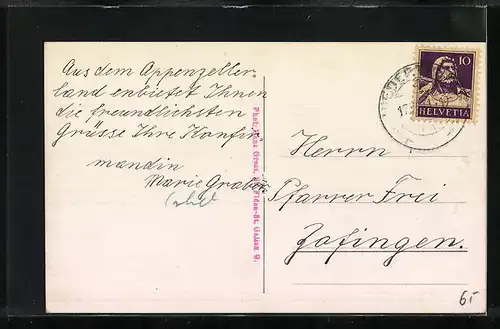 Aus dem Appenzeller
land enbietet Ihnen
die freundlichsten
Grüsse Ihre Konfir
mandin
Marie Graber
Phot. Hans Gross, St. Fiden-St. Gallen O.
10
HELVETIA
17.
Herrn
Pfarrer Frei
Zofingen.
65